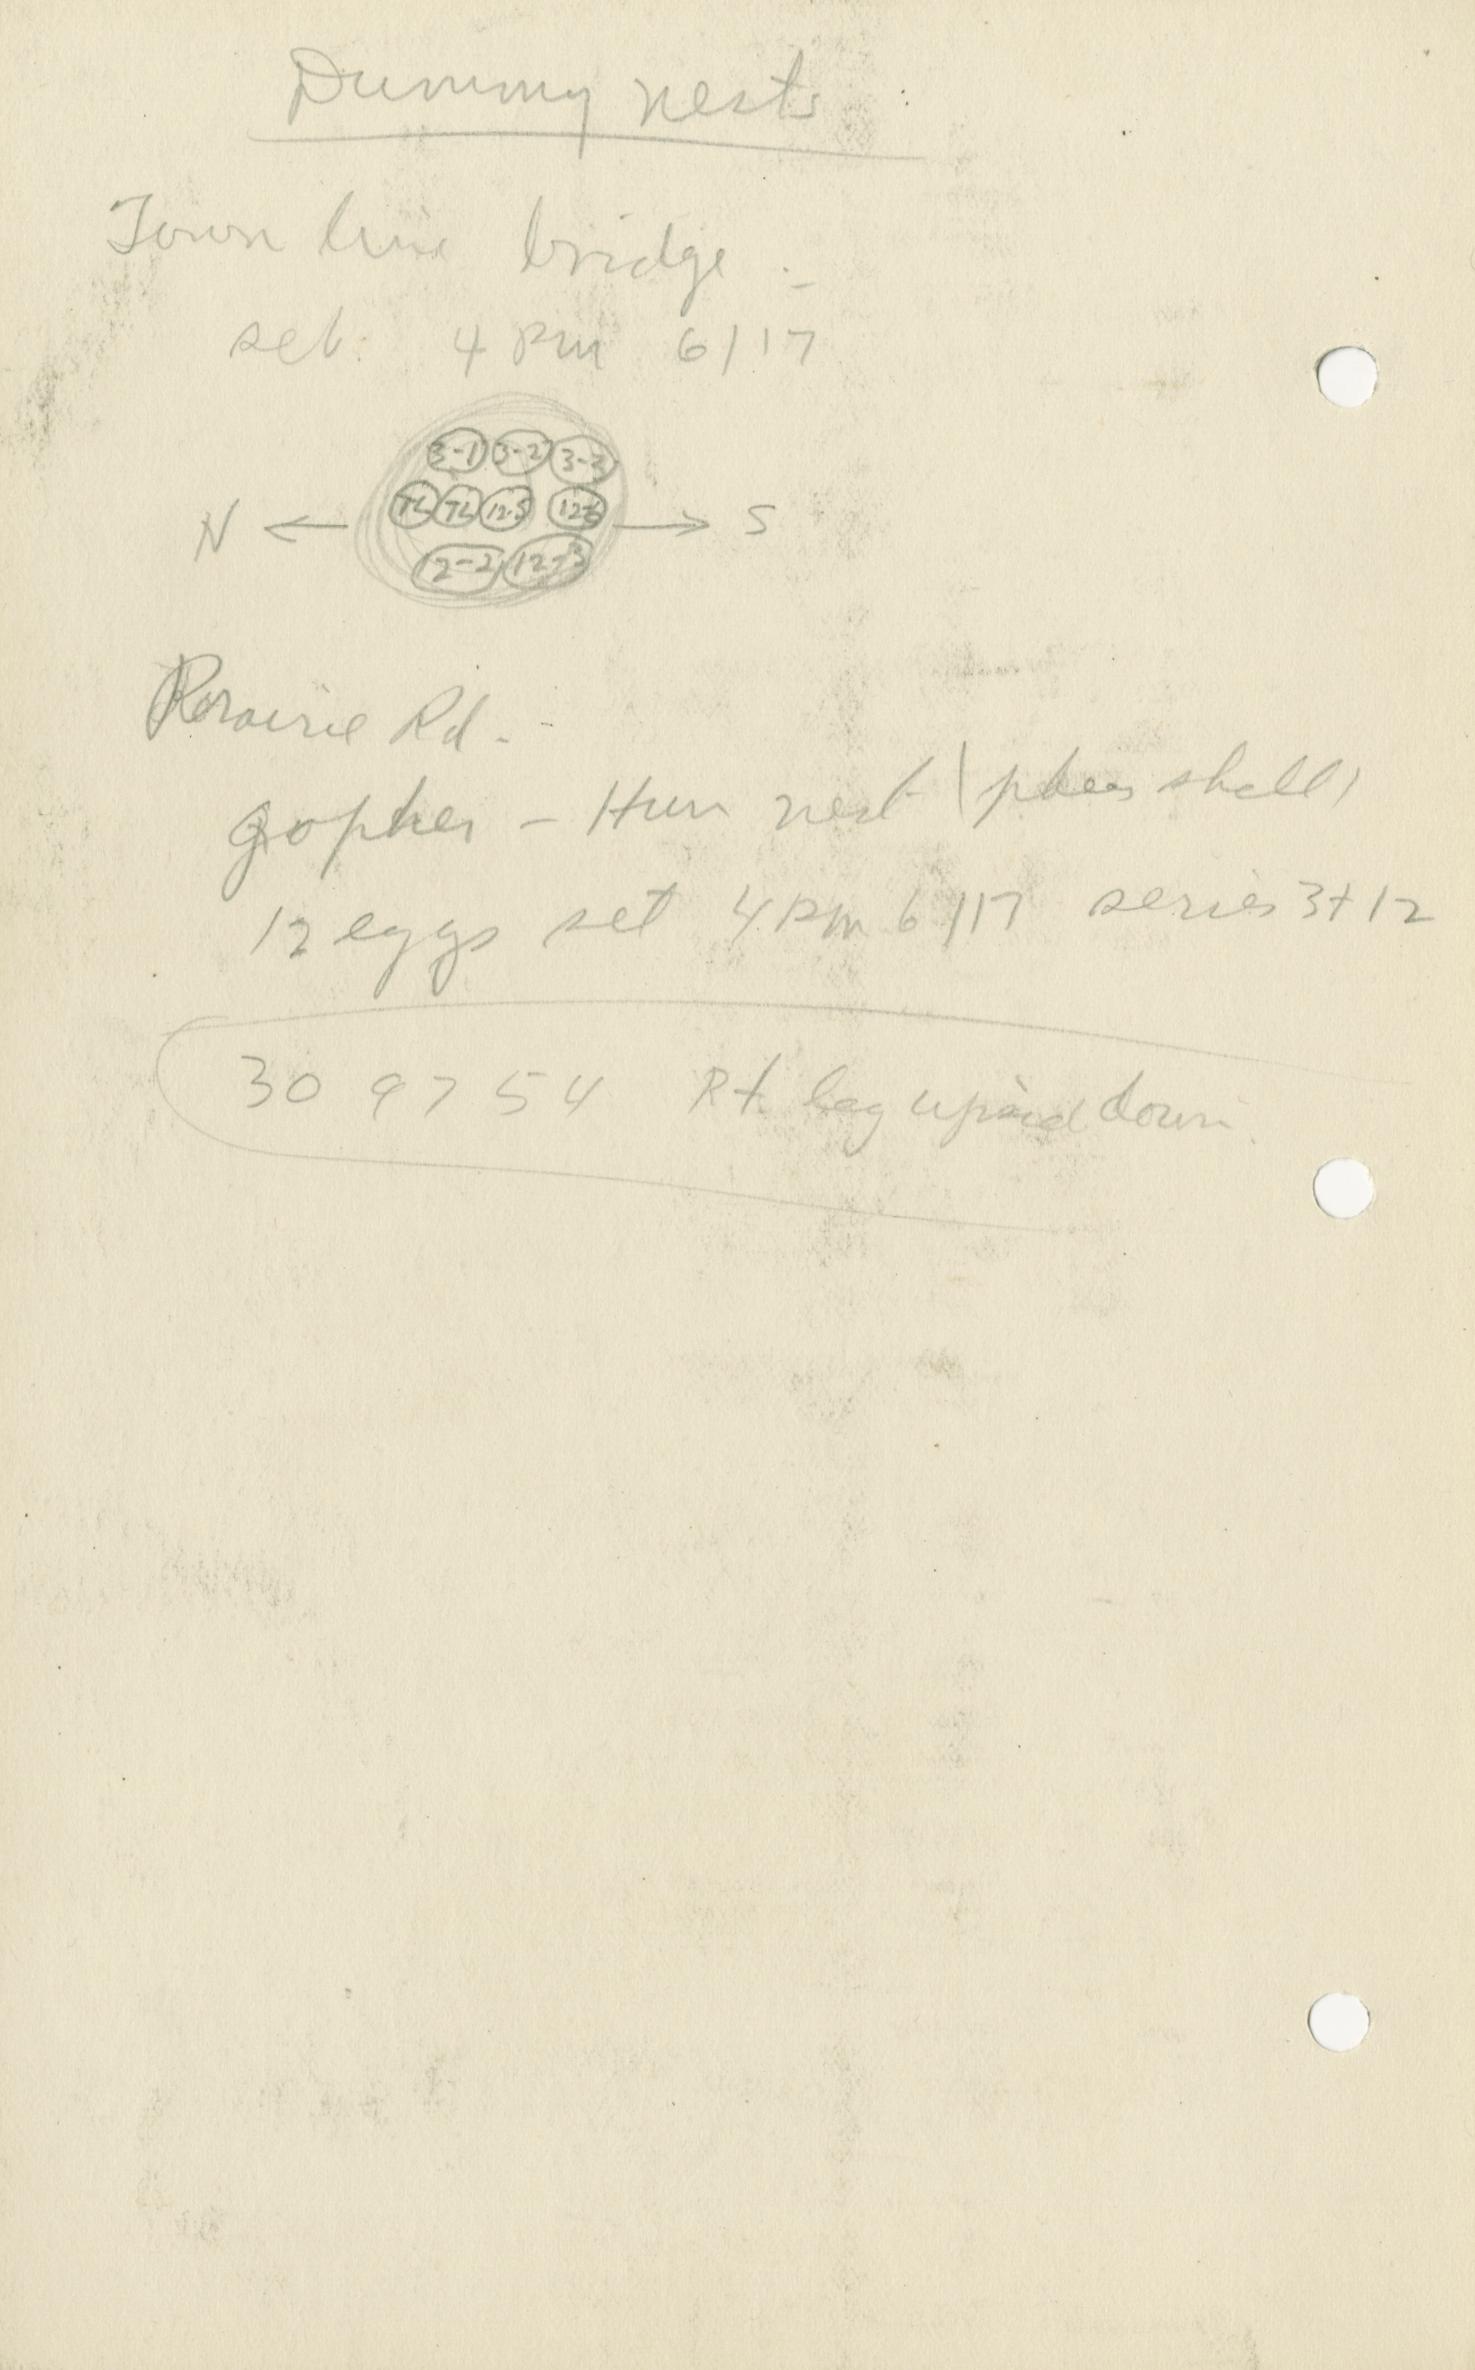 Dummy nests :
Town line bridge :
set: 4 PM 6/17
3-1 3-2 3-3
N ← TL TL 12-5 12-6 → S
2-2 12-3
Prairie Rd. -
gopher - Hun nest (pheas shell)
12 eggs set 4 PM 6/17 series 3+12
30 9754 Rt leg upside down